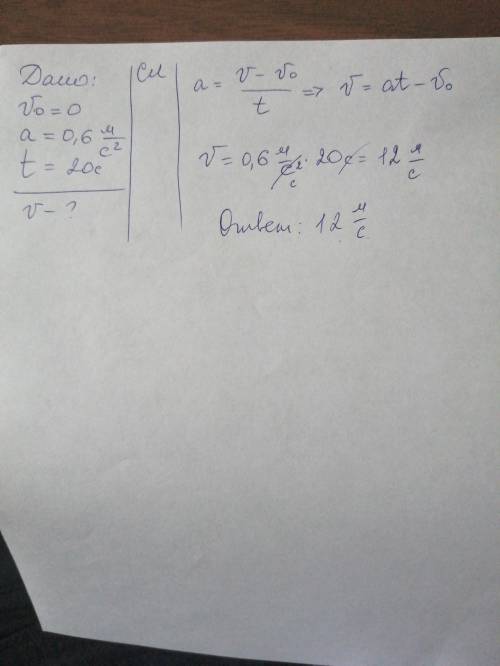 Дано:
v₀ = 0
a = 0,6 м/с²
t = 20с
v - ?
СИ
a = (v - v₀)/t => v = at - v₀
v = 0,6 м/с² · 20с = 12 м/с
Ответ: 12 м/с